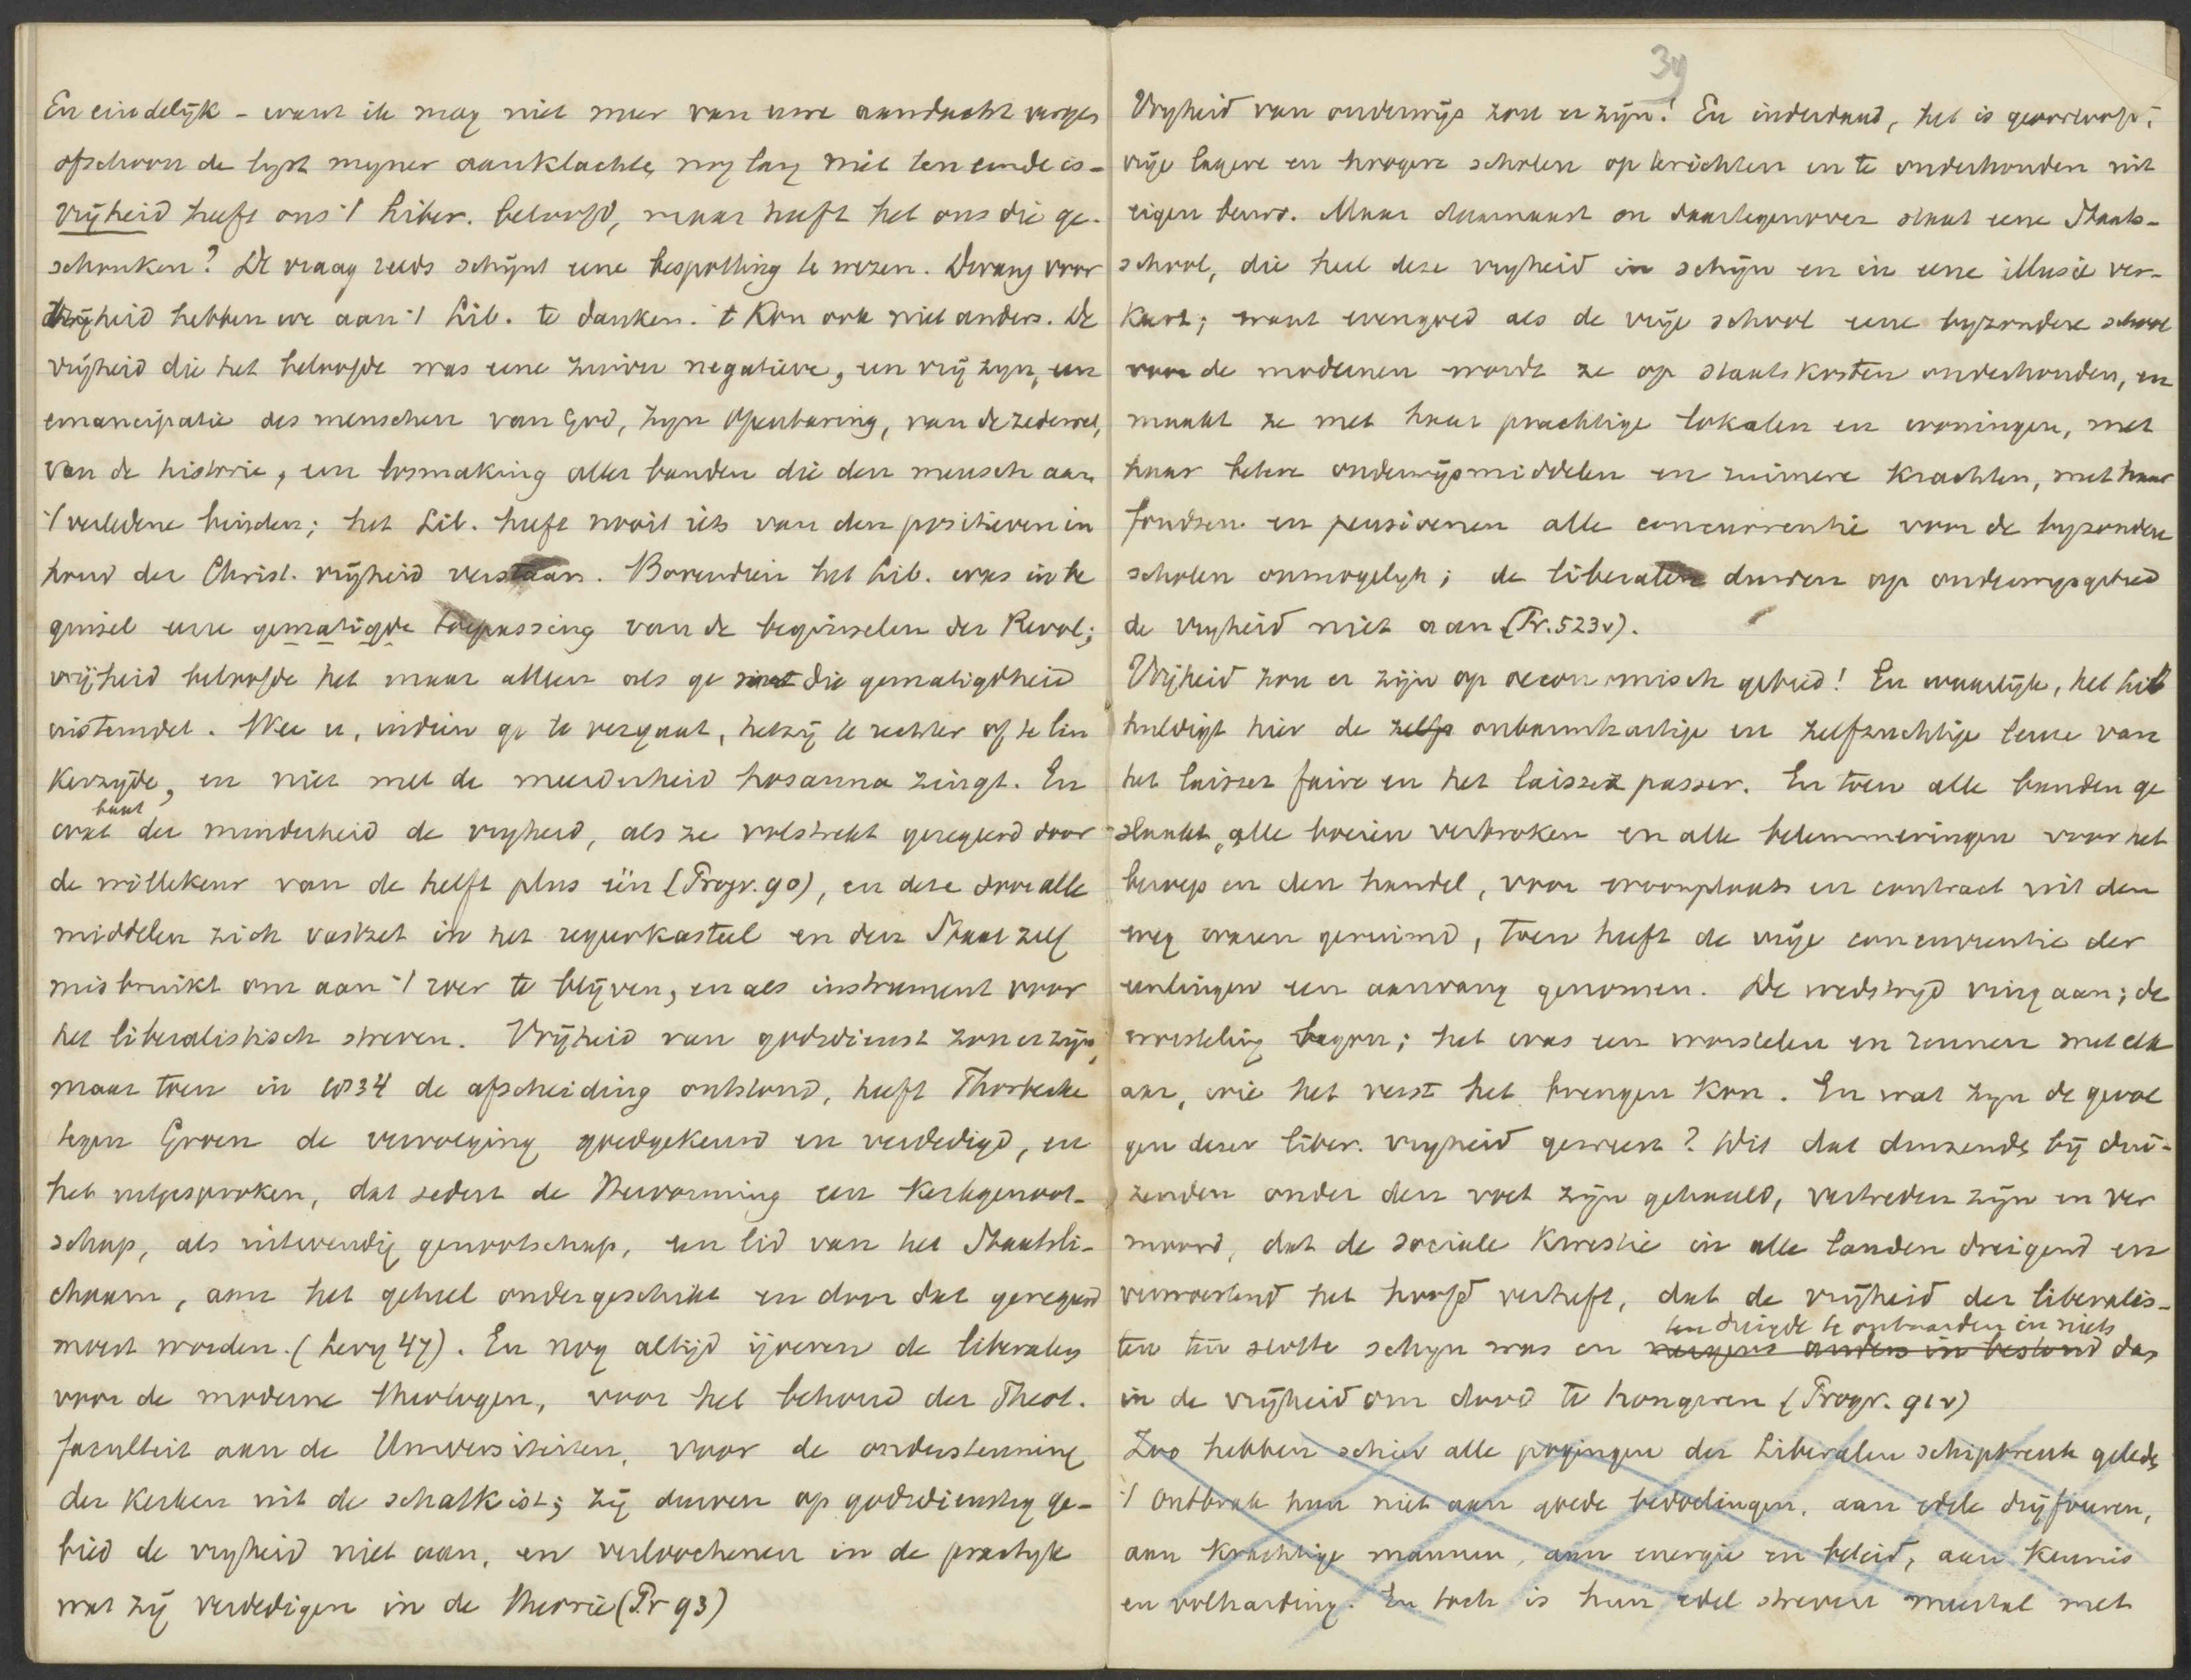 En eindelijk - want ik mag niet meer van uwe aandacht verges
ofschoon de lyst myner aanklachte nog lang niet ten einde is -
vrijheid heeft ons 't Liber. beloofd, maar heeft het ons die ge-
schonken? De vraag reeds schijnt eene bespotting te wezen. Dwang voor
vrijheid hebben we aan 't Lib. te danken. 't Kon ook niet anders. De
vrijheid die het beloofde was eene zuiver negatieve, een vrij zyn, een
emancipatie des menschen van God, zyn Openbaring, van de zedewet,
van de historie, een losmaking aller banden die den mensch aan
't verledene binden; het Lib. heeft nooit iets van den positieven in
houd der Christ. vrijheid verstaan. Bovendien het Lib. was in be
ginsel eene gematigde toepassing van de beginselen der Revol;
vrijheid beloofde het maar alleen als ge met die gematigdheid
instemdet. Wee u, indien ge te ver gaat, hetzij te rechter of te lin
kerzyde, en niet met de meerderheid hosanna zingt. En
baat
wat der minderheid de vryheid, als ze volstrekt geregeerd door
de willekeur van de helft plus één (Progr. 90), en deze door alle
middelen zich vastzet in het regeerkasteel en den Staat zelf
misbruikt om aan 't roer te blijven, en als instrument voor
het liberalistisch streven. Vrijheid van godsdienst zou er zijn,
maar toen in 1834 de afscheiding ontstond, heeft Thorbecke
tegen Groen de vervolging goedgekeurd en verdedigd, en
het uitgesproken, dat sedert de Hervorming een kerkgenoot-
schap, als uitwendig genootschap, een lid van het Staatsli-
chaam, aan het geheel ondergeschikt en door dat geregeerd
moest worden. (Levy 47). En nog altijd ijveren de liberalen
voor de moderne theologen, voor het behoud der Theol.
faculteit aan de Universiteiten, voor de ondersteuning
der kerken uit de schatkist; zij durven op godsdienstig ge-
bied de vryheid niet aan, en verloochenen in de practyk
wat zij verdedigen in de theorie (Pr 93)
39
Vryheid van onderwijs zou er zijn! En inderdaad, het is geoorloofd,
vrije lagere en hoogere scholen op te richten en te onderhouden uit
eigen beurs. Maar daarnaast en daartegenover staat eene Staats-
school, die heel deze vryheid in schijn en in eene illusie ver-
keert; want evengoed als de vrije school eene byzondere school
voor de modernen wordt ze op staatskosten onderhouden, en
maakt ze met haar prachtige lokalen en woningen, met
haar betere onderwijsmiddelen en ruimere krachten, met haar
fondsen en pensioenen alle concurrentie voor de byzondere
scholen onmogelyk; de liberalen durven op onderwysgebied
de vryheid niet aan (Pr. 523v).
Vrijheid zou er zijn op oeconomisch gebied! En waarlijk, het Lib
huldigt hier de zelfs onbarmhartige en zelfzuchtige leuze van
het laisser faire en het laisser passer. En toen alle banden ge
slaakt, alle boeien verbroken en alle belemmeringen voor het
beroep en den handel, voor woonplaats en contract uit den
weg waren geruimd, toen heeft de vrije concurrentie der
eenlingen een aanvang genomen. De wedstryd ving aan; de
worsteling begon; het was een worstelen en rennen met elk
aar, wie het verst het brengen kon. En wat zyn de gevol
gen dezer liber. vryheid geweest? Wis dat duizende bij dui-
zenden onder den voet zijn gehaald, vertreden zijn en ver
moord, dat de sociale kwestie in alle landen dreigend en
verwoestend het hoofd verheft, dat de vrijheid der liberalis-
ten dreigde te ontaarden in niets
ten ten slotte schyn was en nergens anders in bestond dan
in de vrijheid om dood te hongeren (Progr. 91v)
Zoo hebben schier alle pogingen der Liberalen schipbreuk geleden
't Ontbrak hun niet aan goede bedoelingen, aan edele drijfveeren,
aan krachtige mannen, aan energie en beleid, aan kennis
en volharding. En toch is hun edel streven meestal met